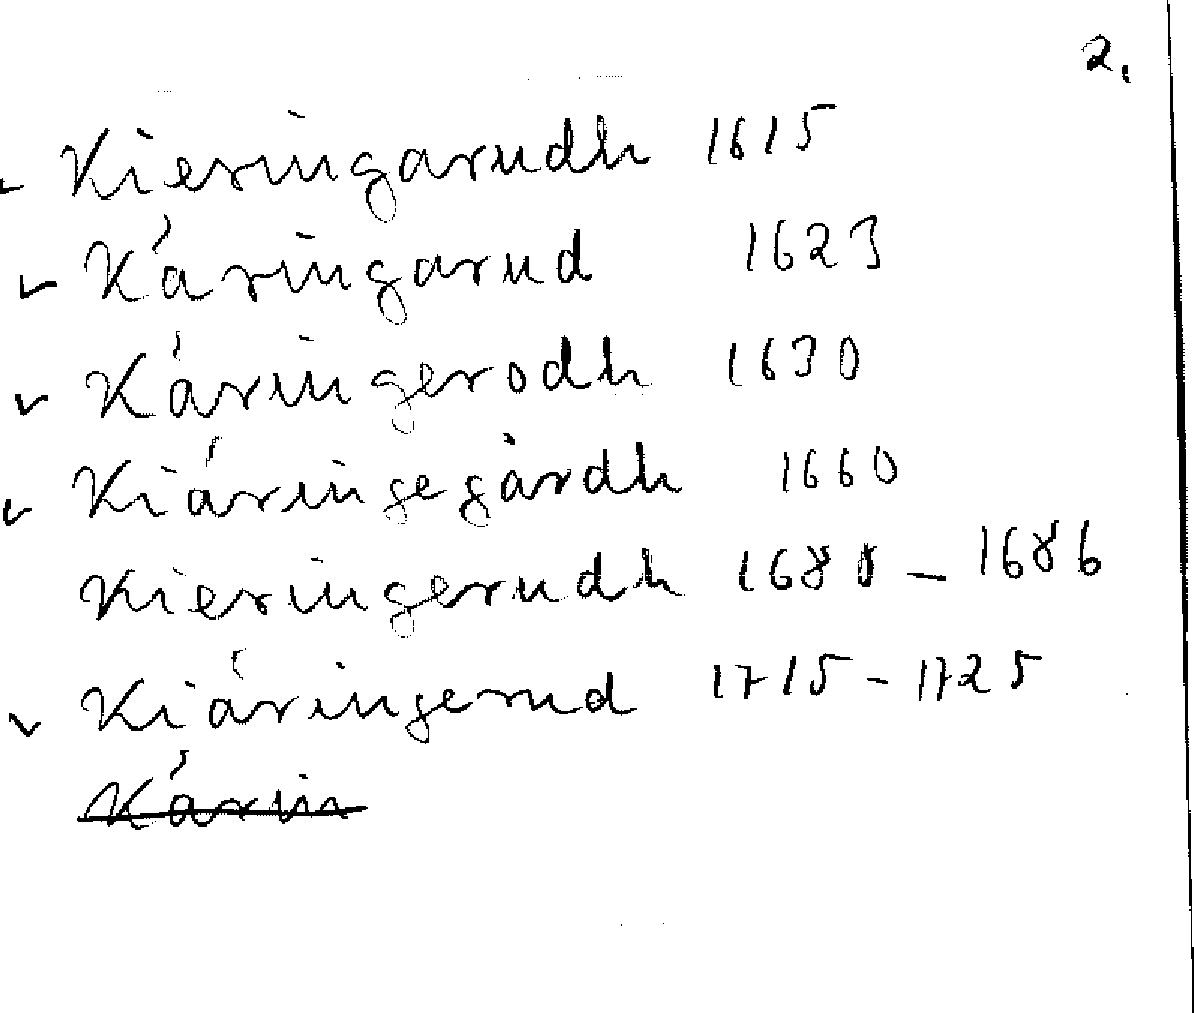 2.
✓ Kieringarudh 1615
✓ Káringarud 1623
✓ Káringerodh 1630
✓ Kiáringegàrdh 1660
Kieringerudh 1680 – 1686
✓ Kiáringerud 1715 – 1725
Kárin